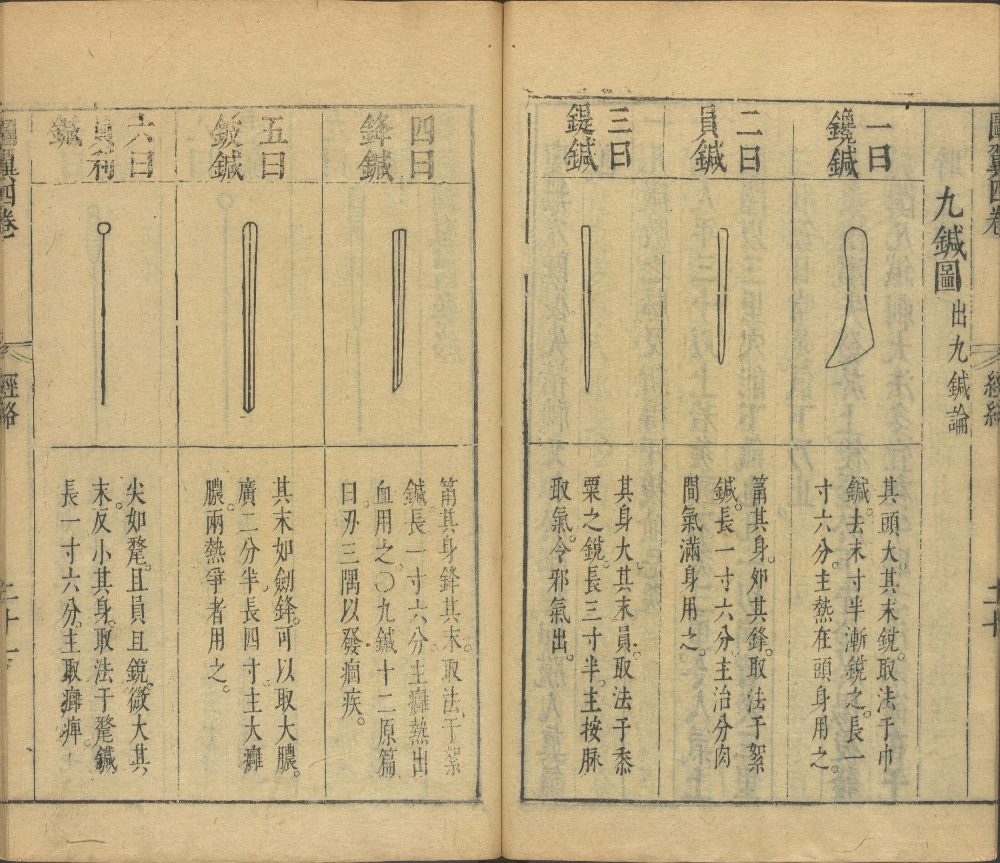 圖翼四卷
經絡
九鍼圖 出九鍼論
一曰
鑱鍼
其頭大。其末銳。取法于巾
鍼。去末寸半漸銳之。長一
寸六分。主熱在頭身用之。
二曰
員鍼
筩其身。夘其鋒。取法于絮
鍼。長一寸六分。主治分肉
間氣滿身用之。
三曰
鍉鍼
其身大。其末員。取法于黍
粟之銳。長三寸半。主按脉
取氣。令邪氣出。
四曰
鋒鍼
筩其身。鋒其末。取法于絮
鍼。長一寸六分。主癰熱出
血用之。〇九鍼十二原篇
曰。刃三隅以發痼疾。
五曰
鈹鍼
其末如劎鋒。可以取大膿。
廣二分半。長四寸。主大癰
膿。兩熱爭者用之。
六曰
員利
鍼
尖如氂。且員且銳。微大其
末。反小其身。取法于氂鍼
長一寸六分。主取癰痺。
圖翼四卷
經絡
二十一